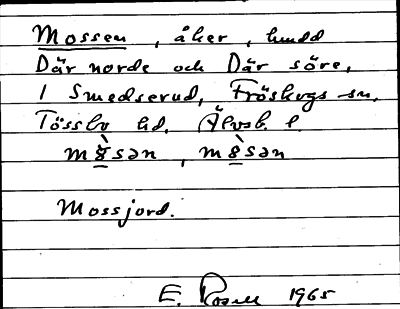 Mossen, åker, hundd
Där norde och Där söre,
1 Smedserud, Fröskogs sn,
Tössbo hd, Älvsb. l.
mò̳sən, mò̳sən
Mossjord.
E. Rosell 1965